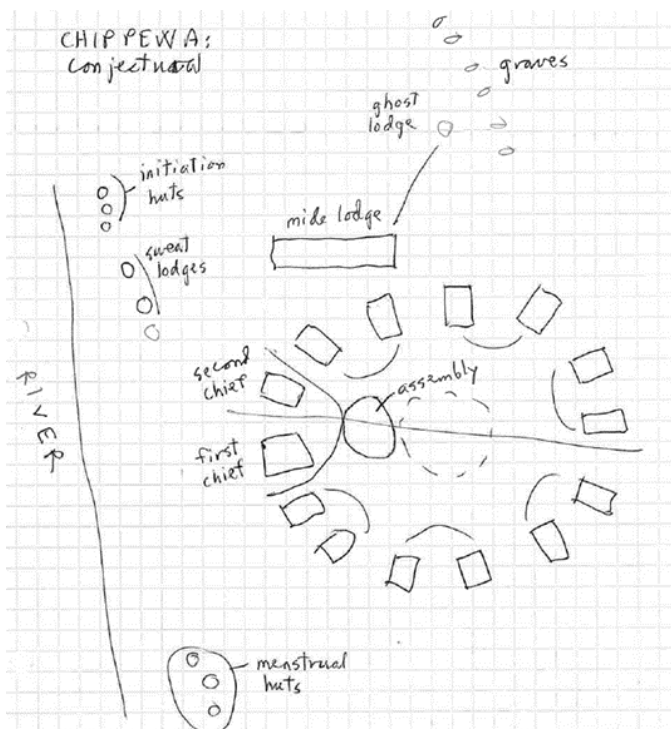 CHIPPEWA:
conjectural
graves
ghost
lodge
initiation
huts
mide lodge
sweat
lodges
second
chief
assembly
RIVER
first
chief
menstrual
huts